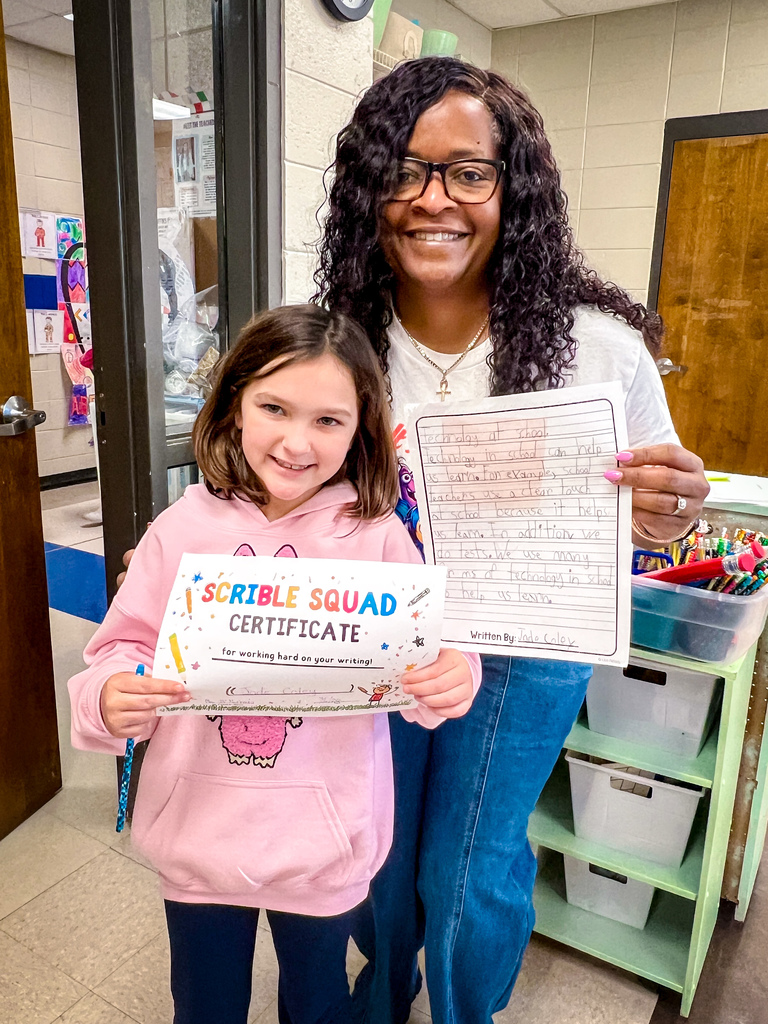 SCRIBLE SQUAD
CERTIFICATE
for working hard on your writing!
Jade Coley
technology at school.
technology in school can help
us learn. For example, school
teachers use a clear touch
a school because it helps
us learn. In addition we
do tests. We use many
ms of technology in school
help us learn.
Written By: Jade Coley